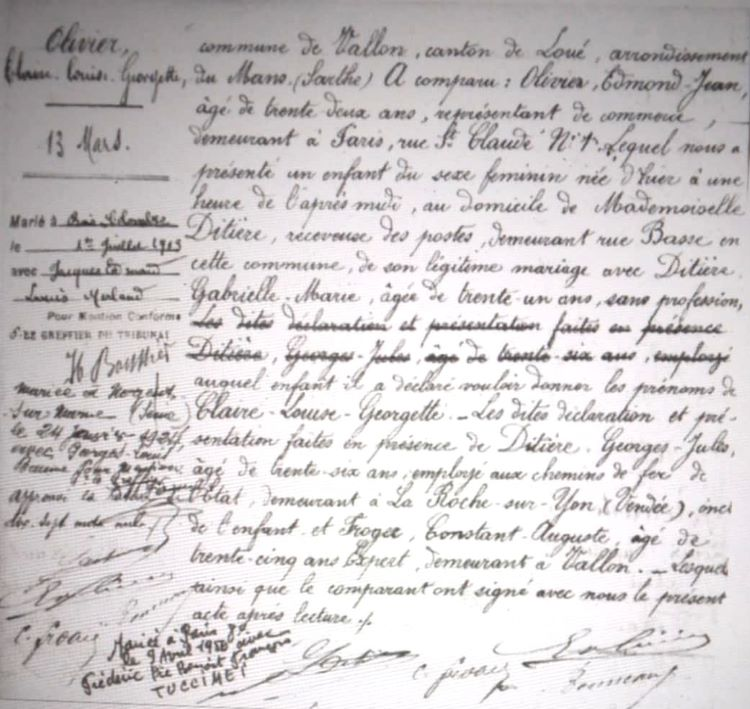 Olivier,
Claire-Louise-Georgette,
13 Mars.
Marié à
le 1er Juillet 1913
avec Jacques
Louis Merland
Pour Mention Conforme
LE GREFFIER DU TRIBUNAL
mariée à Nogent
sur Marne (Seine)
le 24 1924
avec Georges Louis
approuvé
dix sept mots nuls
commune de Vallon, canton de Loué, arrondissement
du Mans (Sarthe) A comparu : Olivier, Edmond-Jean,
âgé de trente deux ans, représentant de commerce,
demeurant à Paris, rue St Claude N° 1. Lequel nous a
présenté un enfant du sexe feminin née d'hier à une
heure de l'après midi, au domicile de Mademoiselle
Ditière, receveuse des postes, demeurant rue Basse en
cette commune, de son légitime mariage avec Ditière
Gabrielle-Marie, âgée de trente-un ans, sans profession,
Les dites déclaration et présentation faites en présence
Ditière, Georges-Jules, âgé de trente-six ans, employé
auquel enfant il a déclaré vouloir donner les prénoms de
Claire-Louise-Georgette. - Les dites déclaration et pré-
sentation faites en présence de Ditière. Georges-Jules,
âgé de trente-six ans, employé aux chemins de fer de
l'Etat, demeurant à La Roche-sur-Yon (Vendée), oncl
de l'enfant et Froger, Constant-Auguste, âgé de
trente-cinq ans Expert, demeurant à Vallon. - Lesquel
ainsi que le comparant ont signé avec nous le présent
acte après lecture ./.
Mariée à Paris
le 9 Avril 1950 avec
Frédéric Pie Benoit François
TUCCIMEI